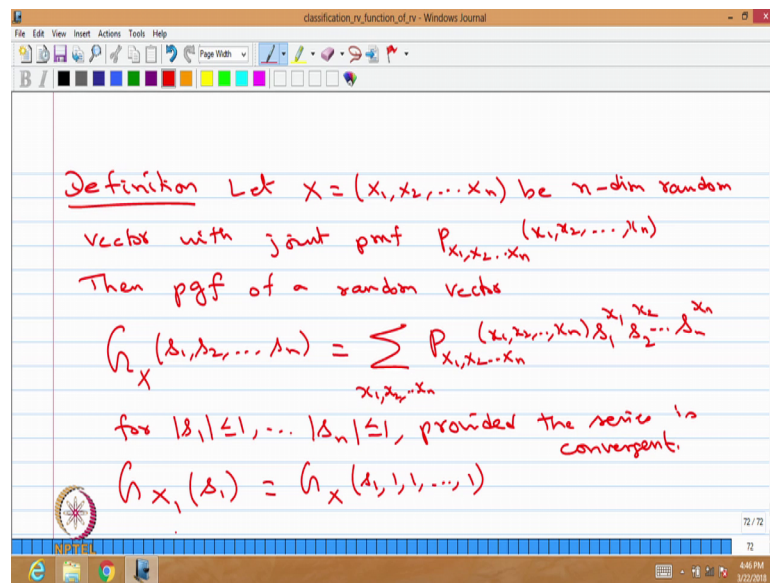 classification_rv_function_of_rv - Windows Journal
File Edit View Insert Actions Tools Help
Page Width
B I
Definition Let X = (X₁, X₂, ... Xₙ) be n-dim random
vector with joint pmf P_{X₁,X₂...Xₙ}(x₁,x₂,...,xₙ)
Then pgf of a random vector
G_X(s₁,s₂,...sₙ) = Σ_{x₁,x₂,...xₙ} P_{X₁,X₂...Xₙ}(x₁,x₂,...,xₙ) s₁^{x₁} s₂^{x₂} ... sₙ^{xₙ}
for |s₁| ≤ 1, ... |sₙ| ≤ 1, provided the series is
convergent.
G_{X₁}(s₁) = G_X(s₁,1,1,...,1)
72 / 72
NPTEL
72
4:46 PM
3/22/2018